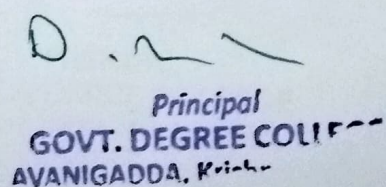 D.
Principal
GOVT. DEGREE COLLEGE
AVANIGADDA, Krishna